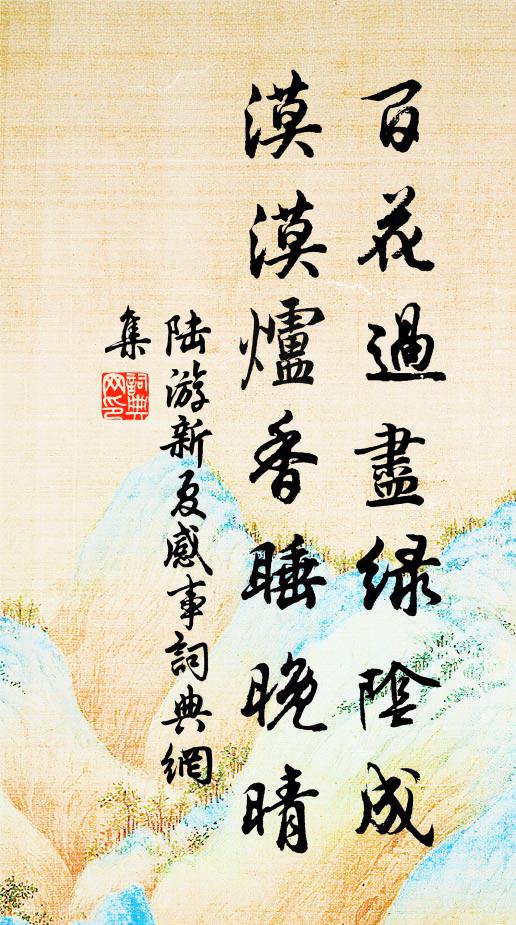 百花過盡綠陰成
漠漠爐香睡晚晴
陆游新夏感事詞典網
集
詞典
网印